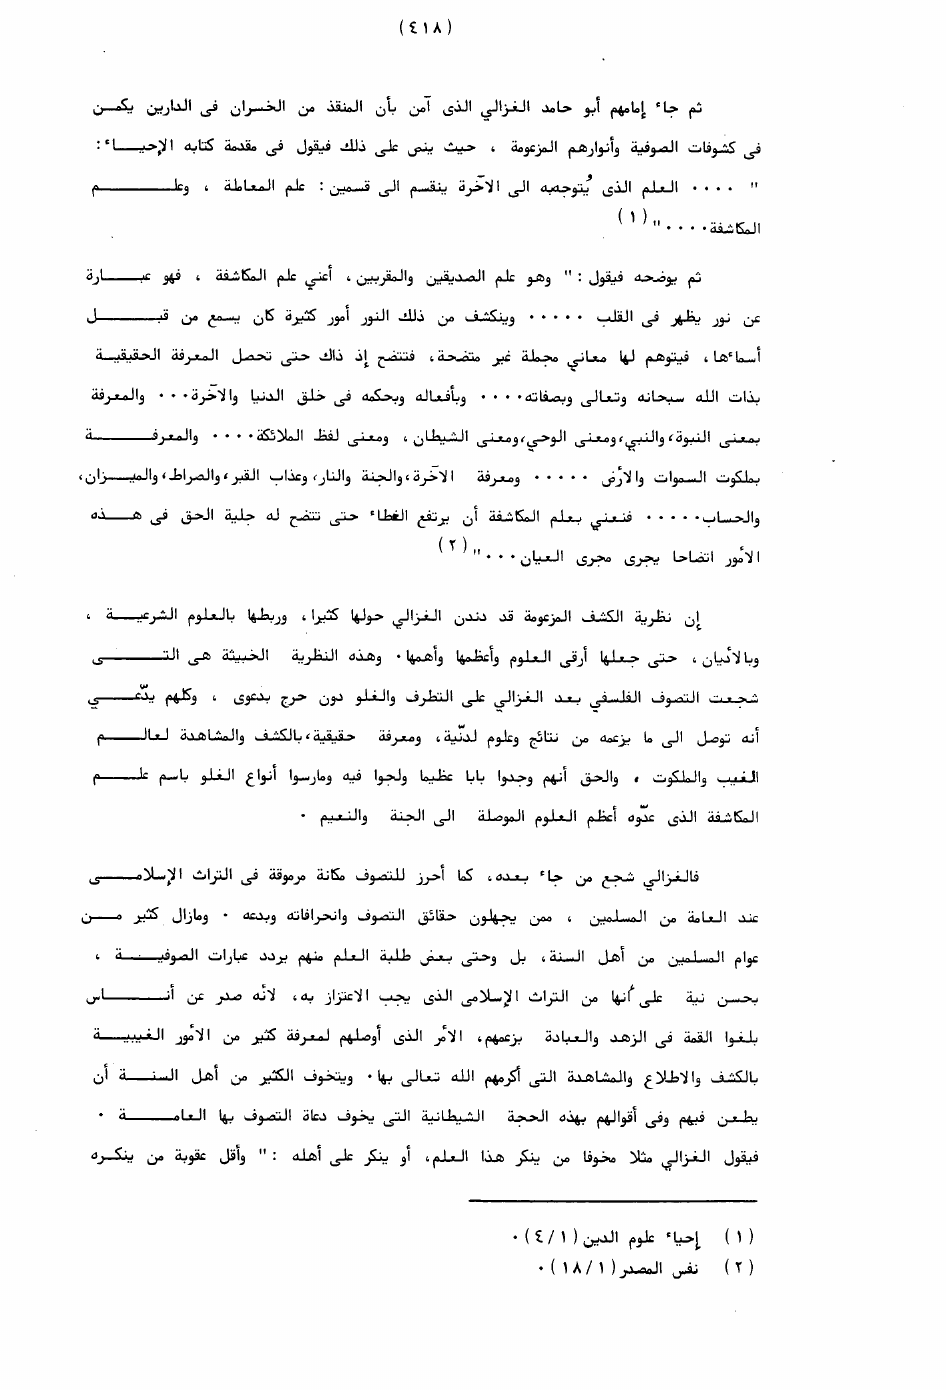 (٤١٨)
ثم جاء إمامهم أبو حامد الغزالي الذى آمن بأن المنقذ من الخسران فى الدارين يكمـن
فى كشوفات الصوفية وأنوارهم المزعومة ، حيث ينص على ذلك فيقول فى مقدمة كتابه الإحيـــاء:
" ٠٠٠٠ العلم الذى يُتوجه به الى الآخرة ينقسم الى قسمين: علم المعاملة ، وعلـــــــم
المكاشفة٠٠٠٠"(١)
ثم يوضحه فيقول :" وهو علم الصديقين والمقربين، أعني علم المكاشفة ، فهو عبـــارة
عن نور يظهر فى القلب ٠٠٠٠٠ وينكشف من ذلك النور أمور كثيرة كان يسمع من قبـــــل
أسماءها، فيتوهم لها معاني مجملة غير متضحة، فتتضح إذ ذاك حتى تحصل المعرفة الحقيقيـة
بذات الله سبحانه وتعالى وبصفاته٠٠٠٠ وبأفعاله وبحكمه فى خلق الدنيا والآخرة٠٠٠ والمعرفة
بمعنى النبوة، والنبي، ومعنى الوحي، ومعنى الشيطان، ومعنى لفظ الملائكة٠٠٠٠ والمعرفـــــة
بملكوت السموات والأرض ٠٠٠٠٠ ومعرفة الآخرة، والجنة والنار، وعذاب القبر، والصراط، والميـــزان،
والحساب٠٠٠٠٠ فنعني بعلم المكاشفة أن يرتفع الغطاء حتى تتضح له جلية الحق فى هـــذه
الأمور اتضاحا يجرى مجرى العيان٠٠٠"(٢)
إن نظرية الكشف المزعومة قد دندن الغزالي حولها كثيرا، وربطها بالعلوم الشرعيـــة ،
وبالأديان، حتى جعلها أرقى العلوم وأعظمها وأهمها٠ وهذه النظرية الخبيثة هى التـــــى
شجعت التصوف الفلسفي بعد الغزالي على التطرف والغلو دون حرج بدعوى ، وكلهم يدّعـــي
أنه توصل الى ما يزعمه من نتائج وعلوم لدنّية، ومعرفة حقيقية، بالكشف والمشاهدة لعالـــم
الغيب والملكوت ، والحق أنهم وجدوا بابا عظيما ولجوا فيه ومارسوا أنواع الغلو باسم علـــم
المكاشفة الذى عدّوه أعظم العلوم الموصلة الى الجنة والنعيم ٠
فالغزالي شجع من جاء بعده، كما أحرز للتصوف مكانة مرموقة فى التراث الإسلامـــى
عند العامة من المسلمين ، ممن يجهلون حقائق التصوف وانحرافاته وبدعه ٠ ومازال كثير مـــن
عوام المسلمين من أهل السنة، بل وحتى بعض طلبة العلم منهم يردد عبارات الصوفيـــة ،
بحسن نية على أنها من التراث الإسلامى الذى يجب الاعتزاز به، لأنه صدر عن أنـــاس
بلغوا القمة فى الزهد والعبادة بزعمهم، الأمر الذى أوصلهم لمعرفة كثير من الأمور الغيبيـــة
بالكشف والاطلاع والمشاهدة التى أكرمهم الله تعالى بها٠ ويتخوف الكثير من أهل السنـــة أن
يطعن فيهم وفى أقوالهم بهذه الحجة الشيطانية التى يخوف دعاة التصوف بها العامـــة ٠
فيقول الغزالي مثلا مخوفا من ينكر هذا العلم، أو ينكر على أهله :" وأقل عقوبة من ينكـره
(١) إحياء علوم الدين(٤/١)٠
(٢) نفس المصدر(١٨/١)٠